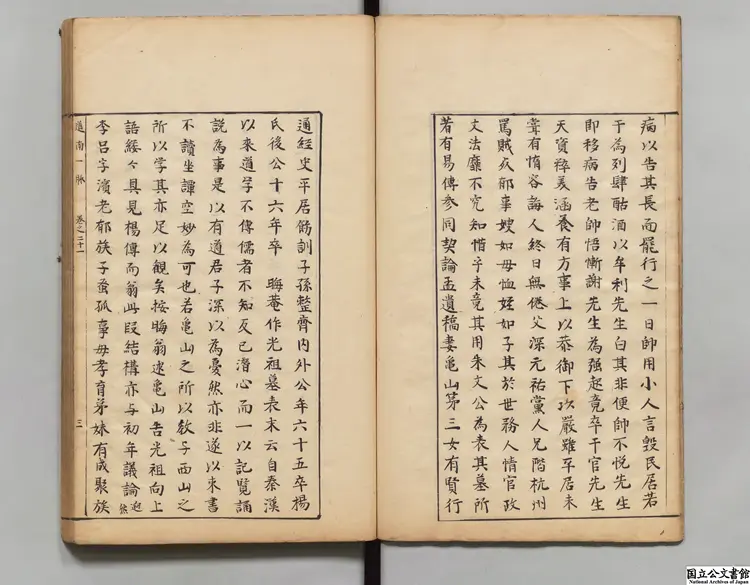 病以告其長而罷行之一日師用小人言毀民居若
干為列肆酤酒以牟利先生白其非便師不悦先生
即移病告老師悟慚謝先生為強起竟卒于官先生
天資粹美涵養有方事上以恭御下以嚴雖平居未
嘗有惰容誨人終日無倦父深元祐黨人兄階杭州
罵賊死即事嫂如母恤姪如子其於世務人情官政
文法靡不究知惜乎未竟其用朱文公為表其墓所
著有易傳參同契論孟遺稿妻龜山第三女有賢行
通經史平居飭訓子孫整齊内外公年六十五卒楊
氏後公十六年卒 晦菴作光祖墓表末云自秦漢
以來道学不傳儒者不知反己潛心而一以記覽誦
說為事是以有道君子深以為憂然亦非遂以束書
不讀坐譚空妙為可也若龜山之所以教子西山之
所以學其亦足以觀矣按晦翁述龜山告光祖向上
語綏々具見楊傳而翁此段結構亦与初年議論逈
然
李呂字濱老邵族子蚤孤事母孝育弟妹有成聚族
道南一脉 卷之二十一 三
国立公文書館
National Archives of Japan